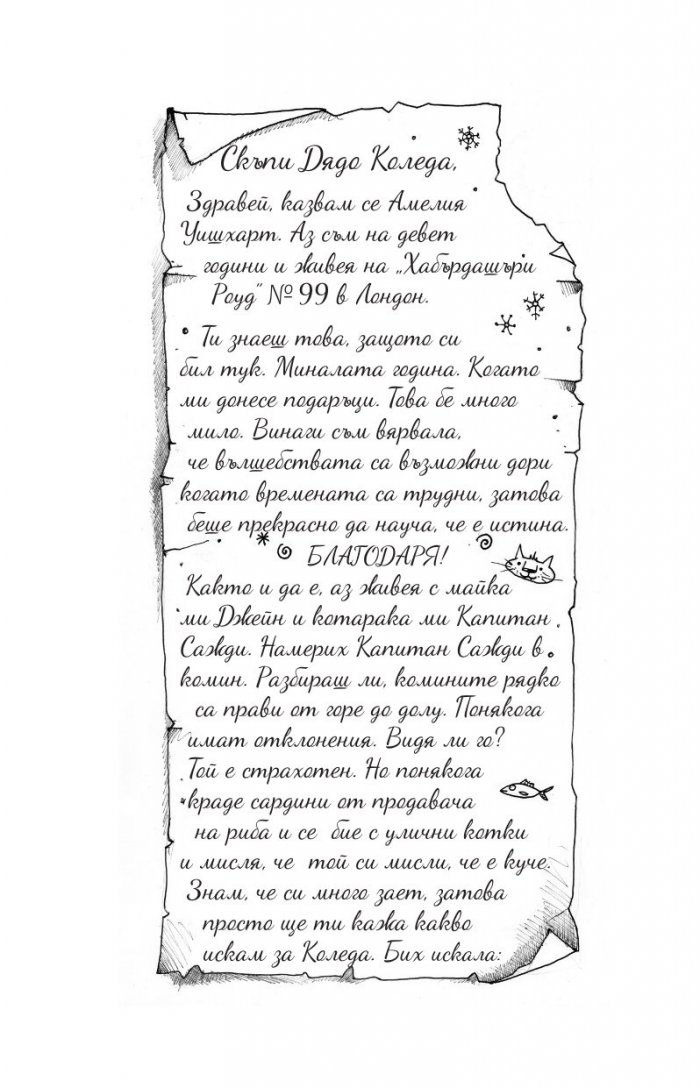 Скъпи Дядо Коледа,
Здравей, казвам се Амелия
Уишхарт. Аз съм на девет
години и живея на „Хабърдашъри
Роуд“ № 99 в Лондон.
Ти знаеш това, защото си
бил тук. Миналата година. Когато
ми донесе подаръци. Това бе много
мило. Винаги съм вярвала,
че вълшебствата са възможни дори
когато времената са трудни, затова
беше прекрасно да науча, че е истина.
БЛАГОДАРЯ!
Както и да е, аз живея с майка
ми Джейн и котарака ми Капитан
Сажди. Намерих Капитан Сажди в
комин. Разбираш ли, комините рядко
са прави от горе до долу. Понякога
имат отклонения. Видя ли го?
Той е страхотен. Но понякога
краде сардини от продавача
на риба и се бие с улични котки
и мисля, че той си мисли, че е куче.
Знам, че си много зает, затова
просто ще ти кажа какво
искам за Коледа. Бих искала: